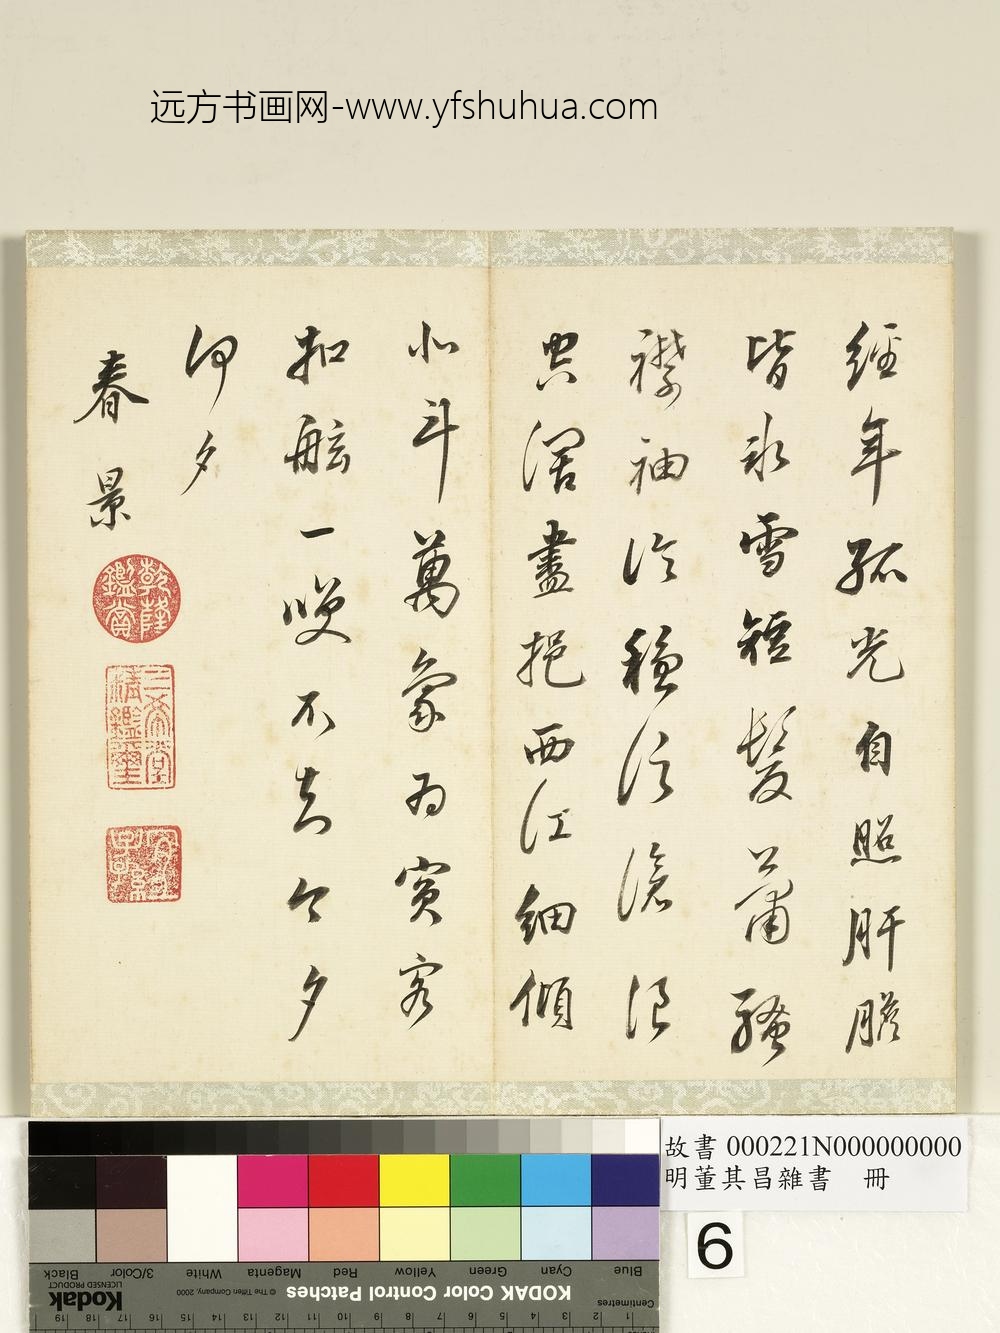 远方书画网-www.yfshuhua.com
經年孤光自照肝膽
皆冰雪短髮蕭騷
襟袖冷穩泛滄浪
空濶盡挹西江細傾
北斗萬象為賓客
扣舷一笑不知今夕
何夕
春景
乾隆鑑賞
三希堂精鑑璽
故書 000221N000000000
明董其昌雜書 冊
6
Blue
Cyan
Green
Yellow
Red
Magenta
White
3/Color
Black
Centimetres
KODAK Color Control Patches
© The Tiffen Company, 2000
Kodak
LICENSED PRODUCT
1 2 3 4 5 6 7 8 9 10 11 12 13 14 15 16 17 18 19